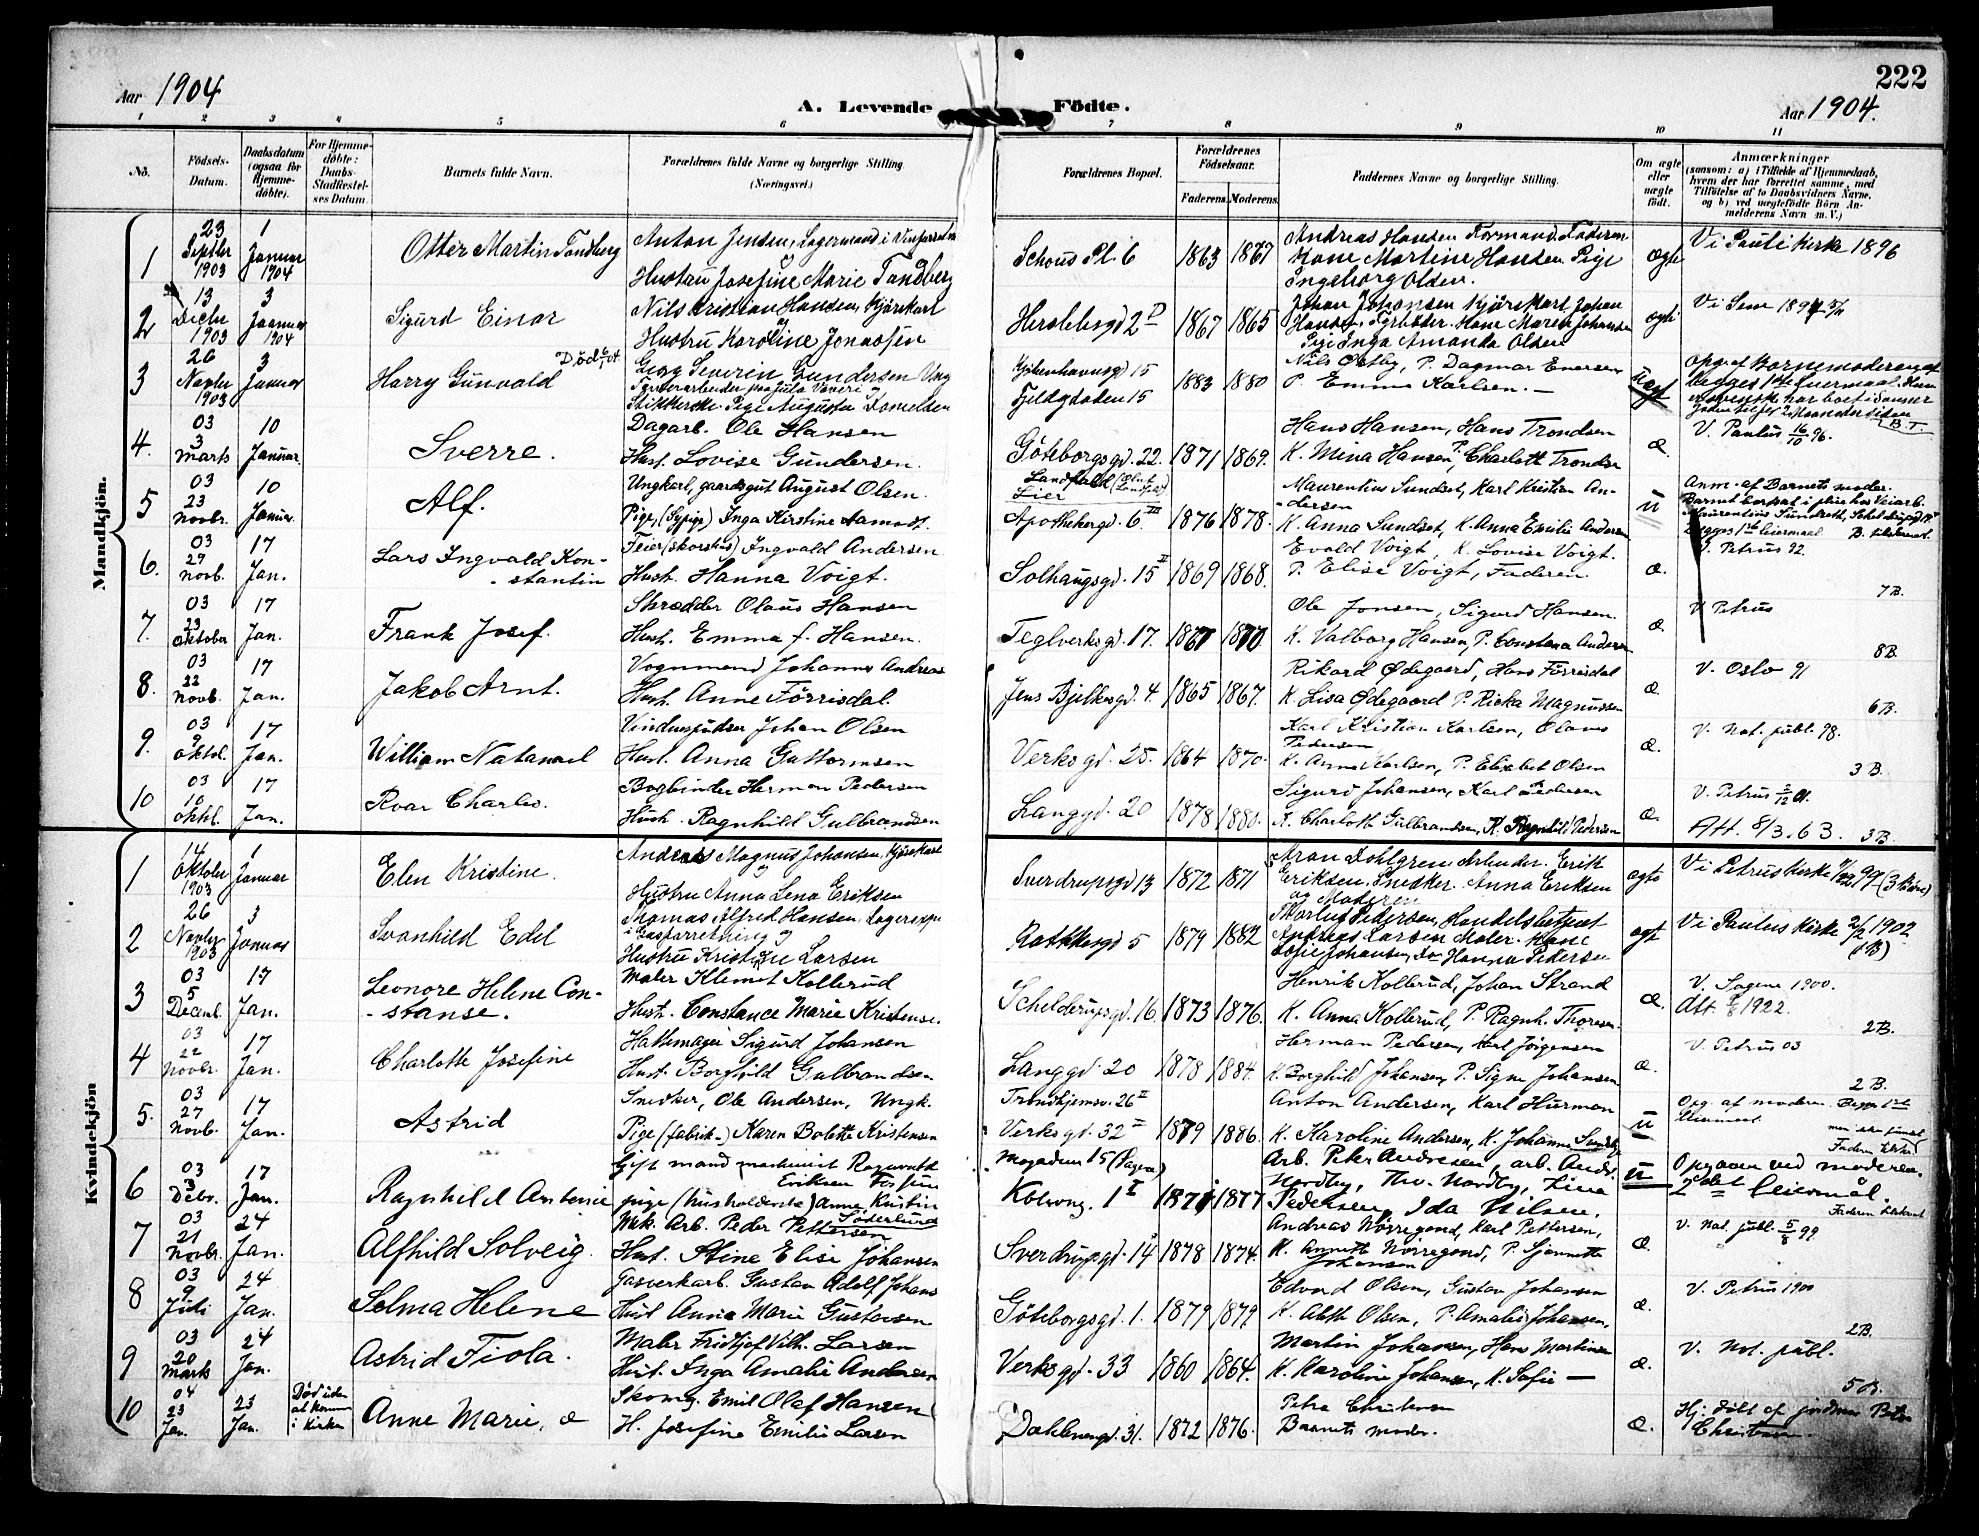 222
Aar 1904
A. Levende Födte.
Aar 1904.
1 2 3 4 5 6 7 8 9 10 11
No.
Födsels-Datum.
Daabsdatum (ogsaa for Hjemme-döbte).
For Hjemme-döbte: Daabs-Stadfæstel-ses Datum.
Barnets fulde Navn.
Forældrenes fulde Navne og borgerlige Stilling (Næringsvei.)
Forældrenes Bopæl.
Forældrenes Födselsaar.
Faderens. Moderens.
Faddernes Navne og borgerlige Stilling.
Om ægte eller uægte födt.
Anmærkninger
(saasom: a) i Tilfælde af Hjemmedaab, hvem der har forrettet samme, med Tilföielse af to Daabsvidners Navne, og b) ved uægtefödte Börn An-melderens Navn m. V.)
Mandkjön.
1 23 Septbr 1903 1 Januar 1904 Otter Martin Tandberg
Anton Jensen, Lagermand i
Hustru Josefine Marie Tandberg
Schous Pl. 6 1863 1867
Andreas Hansen Formand. Faderen
Kone Martine Hansen Pige
Ingeborg Olsen.
ægte Vi Pauli Kirke 1896
2 13 Decbr 1903 3 Januar 1904 Sigurd Einar
Nils Kristian Hansen, Kjörekarl
Hustru Karoline Jonassen
Herslebsgd 2 1867 1865
Johan Johansen Kjörekarl Johan
Hansen, Kone Maren Johansen
Pige Inga Amanda Olsen
ægte
3 26 Novbr 1903 3 Januar Harry Gunvald
Georg Severin Gundersen Ung
Pige Augusta Danielsen
Kjöbenhavnsgd 15
Fjeldgdaden 15
1883 1880
Nils Östby, P. Dagmar Enersen
P. Emma Karlsen. —
uægt
4. 03 3 Marts 10 Januar. Sverre.
Dagarb. Ole Hansen
Hust. Lovise Gundersen.
Göteborgsgd. 22. 1871 1869.
Hans Hansen, Hans Trondsen
K. Mina Hansen, P. Charlott Trondse
æ. V. Paulus 16/10 96.
5 03 23 Novbr. 10 Januar. Alf.
Ungkarl, gaardsgut August Olsen.
Pige, (Sypige) Inga Kirstine Aamodt.
Lier
Apothekergd. 6 III 1876 1878.
Maurentius Sundset, Karl Kristian An-
-dersen
K. Anna Sundset, K. Anna Emilie Andersen
u Anm. af Barnets moder.
6. 03 27 Novb. 17 Jan. Lars Ingvald Kon-
-stantin
Feier (skorstens) Ingvald Andersen
Hust. Hanna Voigt.
Solhaugsgd. 15 II 1869 1868.
Evald Voigt, K. Lovise Voigt.
P. Elise Voigt, Faderen.
æ. V. Petrus 92.
7B.
7. 03 23 Oktober 17 Jan. Frank Josef.
Skrædder Olaus Hansen
Hust. Emma f. Hansen.
Teglverksgd. 17. 1867 1870.
Ole Jonsen, Sigurd Hansen.
K. Valborg Hansen, P. Constance Anders
æ. V Petrus
8B.
8. 03 22 Novb. 17 Jan. Jakob Arnt.
Vognmand Johannes Andreas
Hust. Anne Förrisdal.
Jens Bjelkesgd. 4. 1865 1867.
Rikard Ödegaard, Hans Förrisdal
K. Lisa Ödegaard P. Ricka Magnussen
æ. V. Oslo 91
6B.
9. 03 9 Oktob. 17 Jan. William Natanael
Vindupudser Johan Olsen
Hust. Anna Guttormsen
Verksgd. 25. 1864 1870.
Karl Kristian Karlsen, Olaves
Pedersen
K. Anna Karlsen, P. Elisabet Olsen
æ. V. Not. publ. 98.
3B.
10 03 10 Oktb. 17 Jan. Roar Charles.
Bogbinder Herman Pedersen
Hust. Ragnhild Gulbrandsen
Langgd. 20 1878 1880.
Sigurd Johansen, Karl Pedersen
K. Charlotte Gulbrandsen, K. Ragnhild Pedersen
æ. V. Petrus
Att. 8/3. 63. 3B.
Kvindekjön
1 14 Oktober 1903 1 Januar Elen Kristine.
Andreas Magnus Johansen, Kjörekarl
Hustru Anna Lena Eriksen
Sverdrupsgd 13 1872 1871
Aron Dahlgren Arbeider. Erik
Eriksen. Snedker. Anna Eriksen
og Moderen
ægte Vi Petrus Kirke 99 (3 Börn)
2 26 Novbr 1903 3 Januar Svanhild Edel
Thomas Alfred Hansen, Lagerexp.
i Gasforretning og
Hustru Kristine Larsen
Rathkesgd 5 1879 1882
Pedersen, Handelsbetjent
Andreas Larsen Maler. Kone
Sofie Johansen, do Hanna Pedersen
ægt Vi Paulus Kirke 2/2 1902
(B)
3 03 5 Decemb. 17 Jan. Leonore Helene Con-
-stanse.
Maler Klemet Kollerud
Hust. Constance Marie Kristense.
Schelderupsgd. 16. 1873 1876.
Henrik Kollerud, Johan Strand
K. Anna Kollerud, P. Ragnh. Thoresen
æ. V. Sagene 1900.
Att. 1922
2B.
4 03 22 Novbr. 17 Jan. Charlotte Josefine
Hattemager Sigurd Johansen
Hust. Borghild Gulbrandsen
Langgd. 20 1878 1884.
Herman Pedersen, Karl Jörgensen
K. Borghild Johansen, P. Signe Johansen
æ. V. Petrus 03
2B.
5. 03 27 Novb. 17 Jan. Astrid
Snedker, Ole Andersen, Ungk.
Pige (fabrik-) Karen Bolette Kristensen
Trondhjemsv. 26 II
Verksgd. 32 1879 1886.
Anton Andersen, Karl Hurman
K. Karoline Andersen, K. Johanne
u Opg. af moderen.
6 03 3 Debr. 17 Jan. Ragnhild Antonie
Gift mand maskinist Ragnvald
Eriksen
pige (husholderske) Anne Kristin
Söderlund
Kolvong. 1 I 1871 1877
Arb. Peter Andresen, arb. Andr.
Nordby, Thv. Nordby, Lina
Pedersen, Ida Nilsen.
u Opgaver ved moderen.
2det leiermål.
7 03 21 Novbr. 24 Jan. Alfhild Solveig.
Mek. Arb. Peder Pettersen
Hust. Stine Elise Johansen
Sverdrupsgd. 14 1878 1874.
Andreas Nörregaard, Karl Pettersen,
K. Annette Nörregaard, P. Jeannette
Johansen
æ. V. Not. publ. 99
8 03 9 Juli 24 Jan. Selma Helene
Gasverkarb. Gustav Adolf Johans
Hust Anna Marie Gustavsen
Göteborgsgd. 1. 1879 1879
Edvard Olsen, Gustav Johansen
K. Olsen, P. Amalie Johansen,
æ. V. Petrus 1900
2B.
9 03 20 Marts 24 Jan. Astrid Fiola.
Maler Fridtjof Vilh. Larsen
Hust. Inga Amalie Andersen
Verksgd. 33 1860 1864.
Martin Johansen, Hans Martinsen
K. Karoline Johansen, K. Sofie —
æ. V. Not. publ.
5B.
10 04 23 Jan. 23 Jan. Död uden at komme i Kirken Anne Marie, æ
Skomg. Emil Olaf Hansen
H. Josefine Emilie Larsen
Dahlenengd. 31. 1872 1876.
Petra Christensen
Barnets moder.
æ. Hj. döbt af jordmor Petra
Christensen.